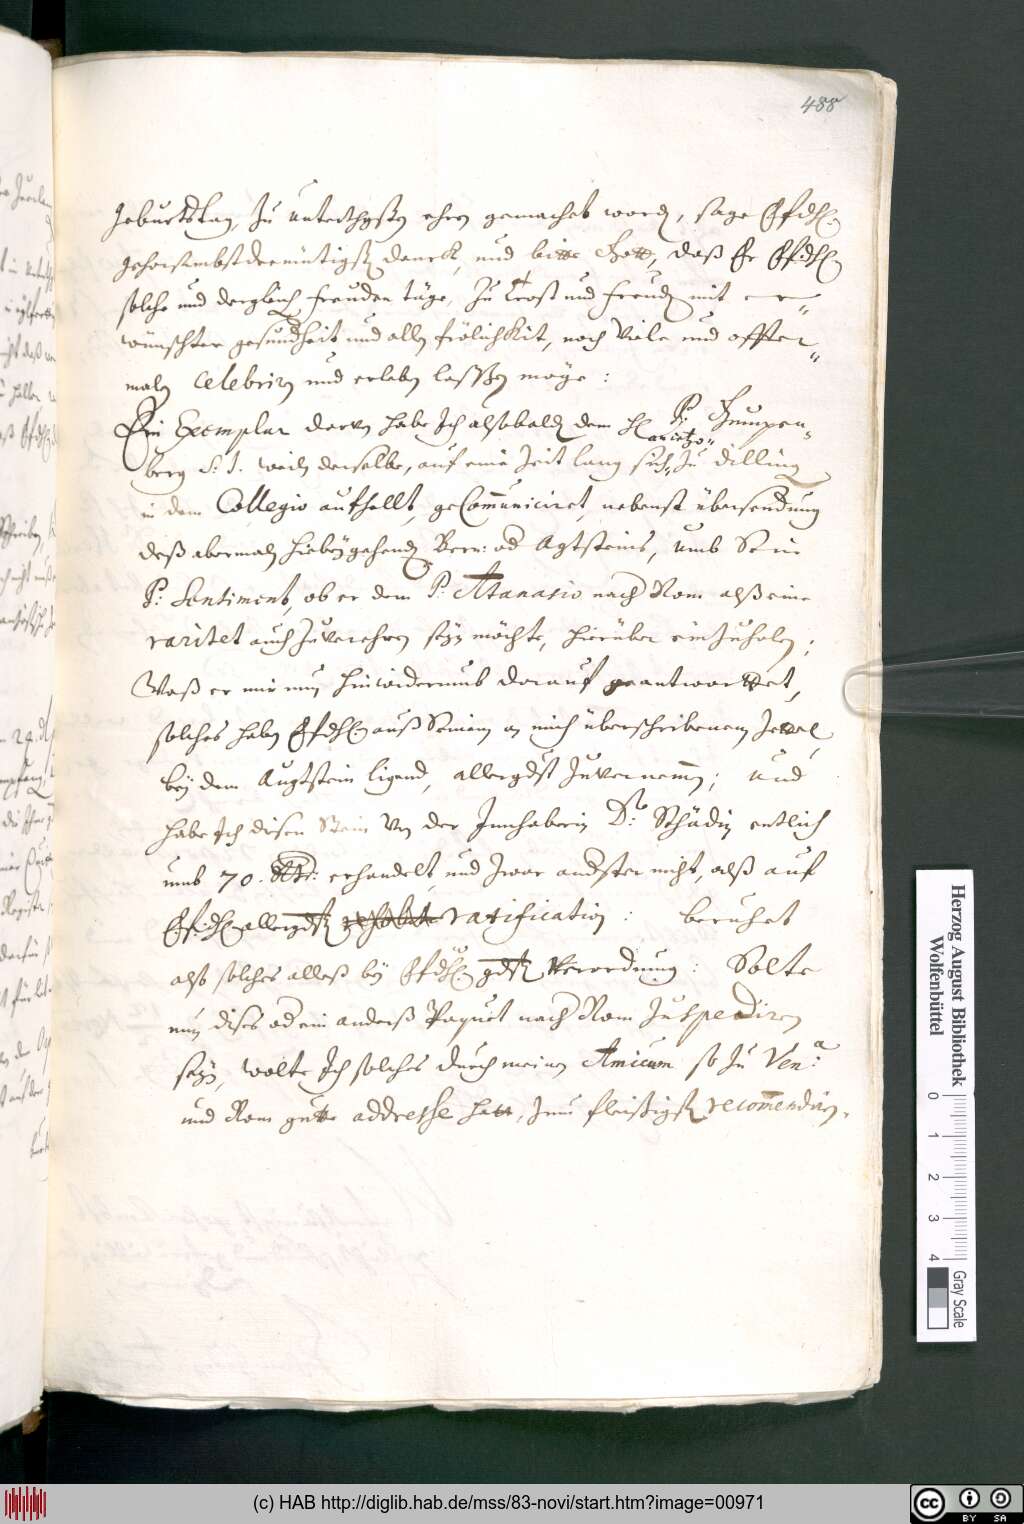 488
geburtstag, zu unterthgsten ehren gemachet worden, sage EfDhl:
gehorsambst demütigsten danck, und bitte Gott, daß Er EfDhl
solche und dergleich freuden täge, zu trost und freuden mit er-
wünschter gesundheit und aller frölichkeit, noch viele und offter
malen celebriren und erleben lassen möge:
Ein Exemplar darvon habe Ich alsobalden dem H P: Gumppen-
berg S. J. weilen derselbe, auf eine Zeit lang sich zu Dilling
in dem Collegio aufhellt, geCommuniciret, nebenst übersendung
deß abermalen hiebeygehenden Bern: od Agtsteins, umb Sein
P: Sentiment, ob er dem P: Atanasio nach Rom alß eine
raritet auch zuverehren seyn möchte, hierüber einzuholen;
Waß er mir nun hinwiderumb darauf geantworttet,
solches haben EfDhl auß Seinem an mich überschribenem Zettel,
bey dem Augtstein ligend, allergdst zuvernemen; und
habe Ich disen Stein von der Innhaberin Dr: Schädin entlich
umb 70. erhandelt, und zwar anderster nicht, alß auf
EfDhl allergdste ratification: beruhet
also solches alleß bey EfDhl gdste Verordnung: Solte
nun dises od ein anderß Paquet nach Rom zu spediren
seyn, wolte Ich solches durch meinen Amicum so zu Ven:a
und Rom gutte addresse hatt, zum fleißigsten recommendiren.
Herzog August Bibliothek
Wolfenbüttel
0 1 2 3 4
Gray Scale
(c) HAB http://diglib.hab.de/mss/83-novi/start.htm?image=00971
cc BY SA